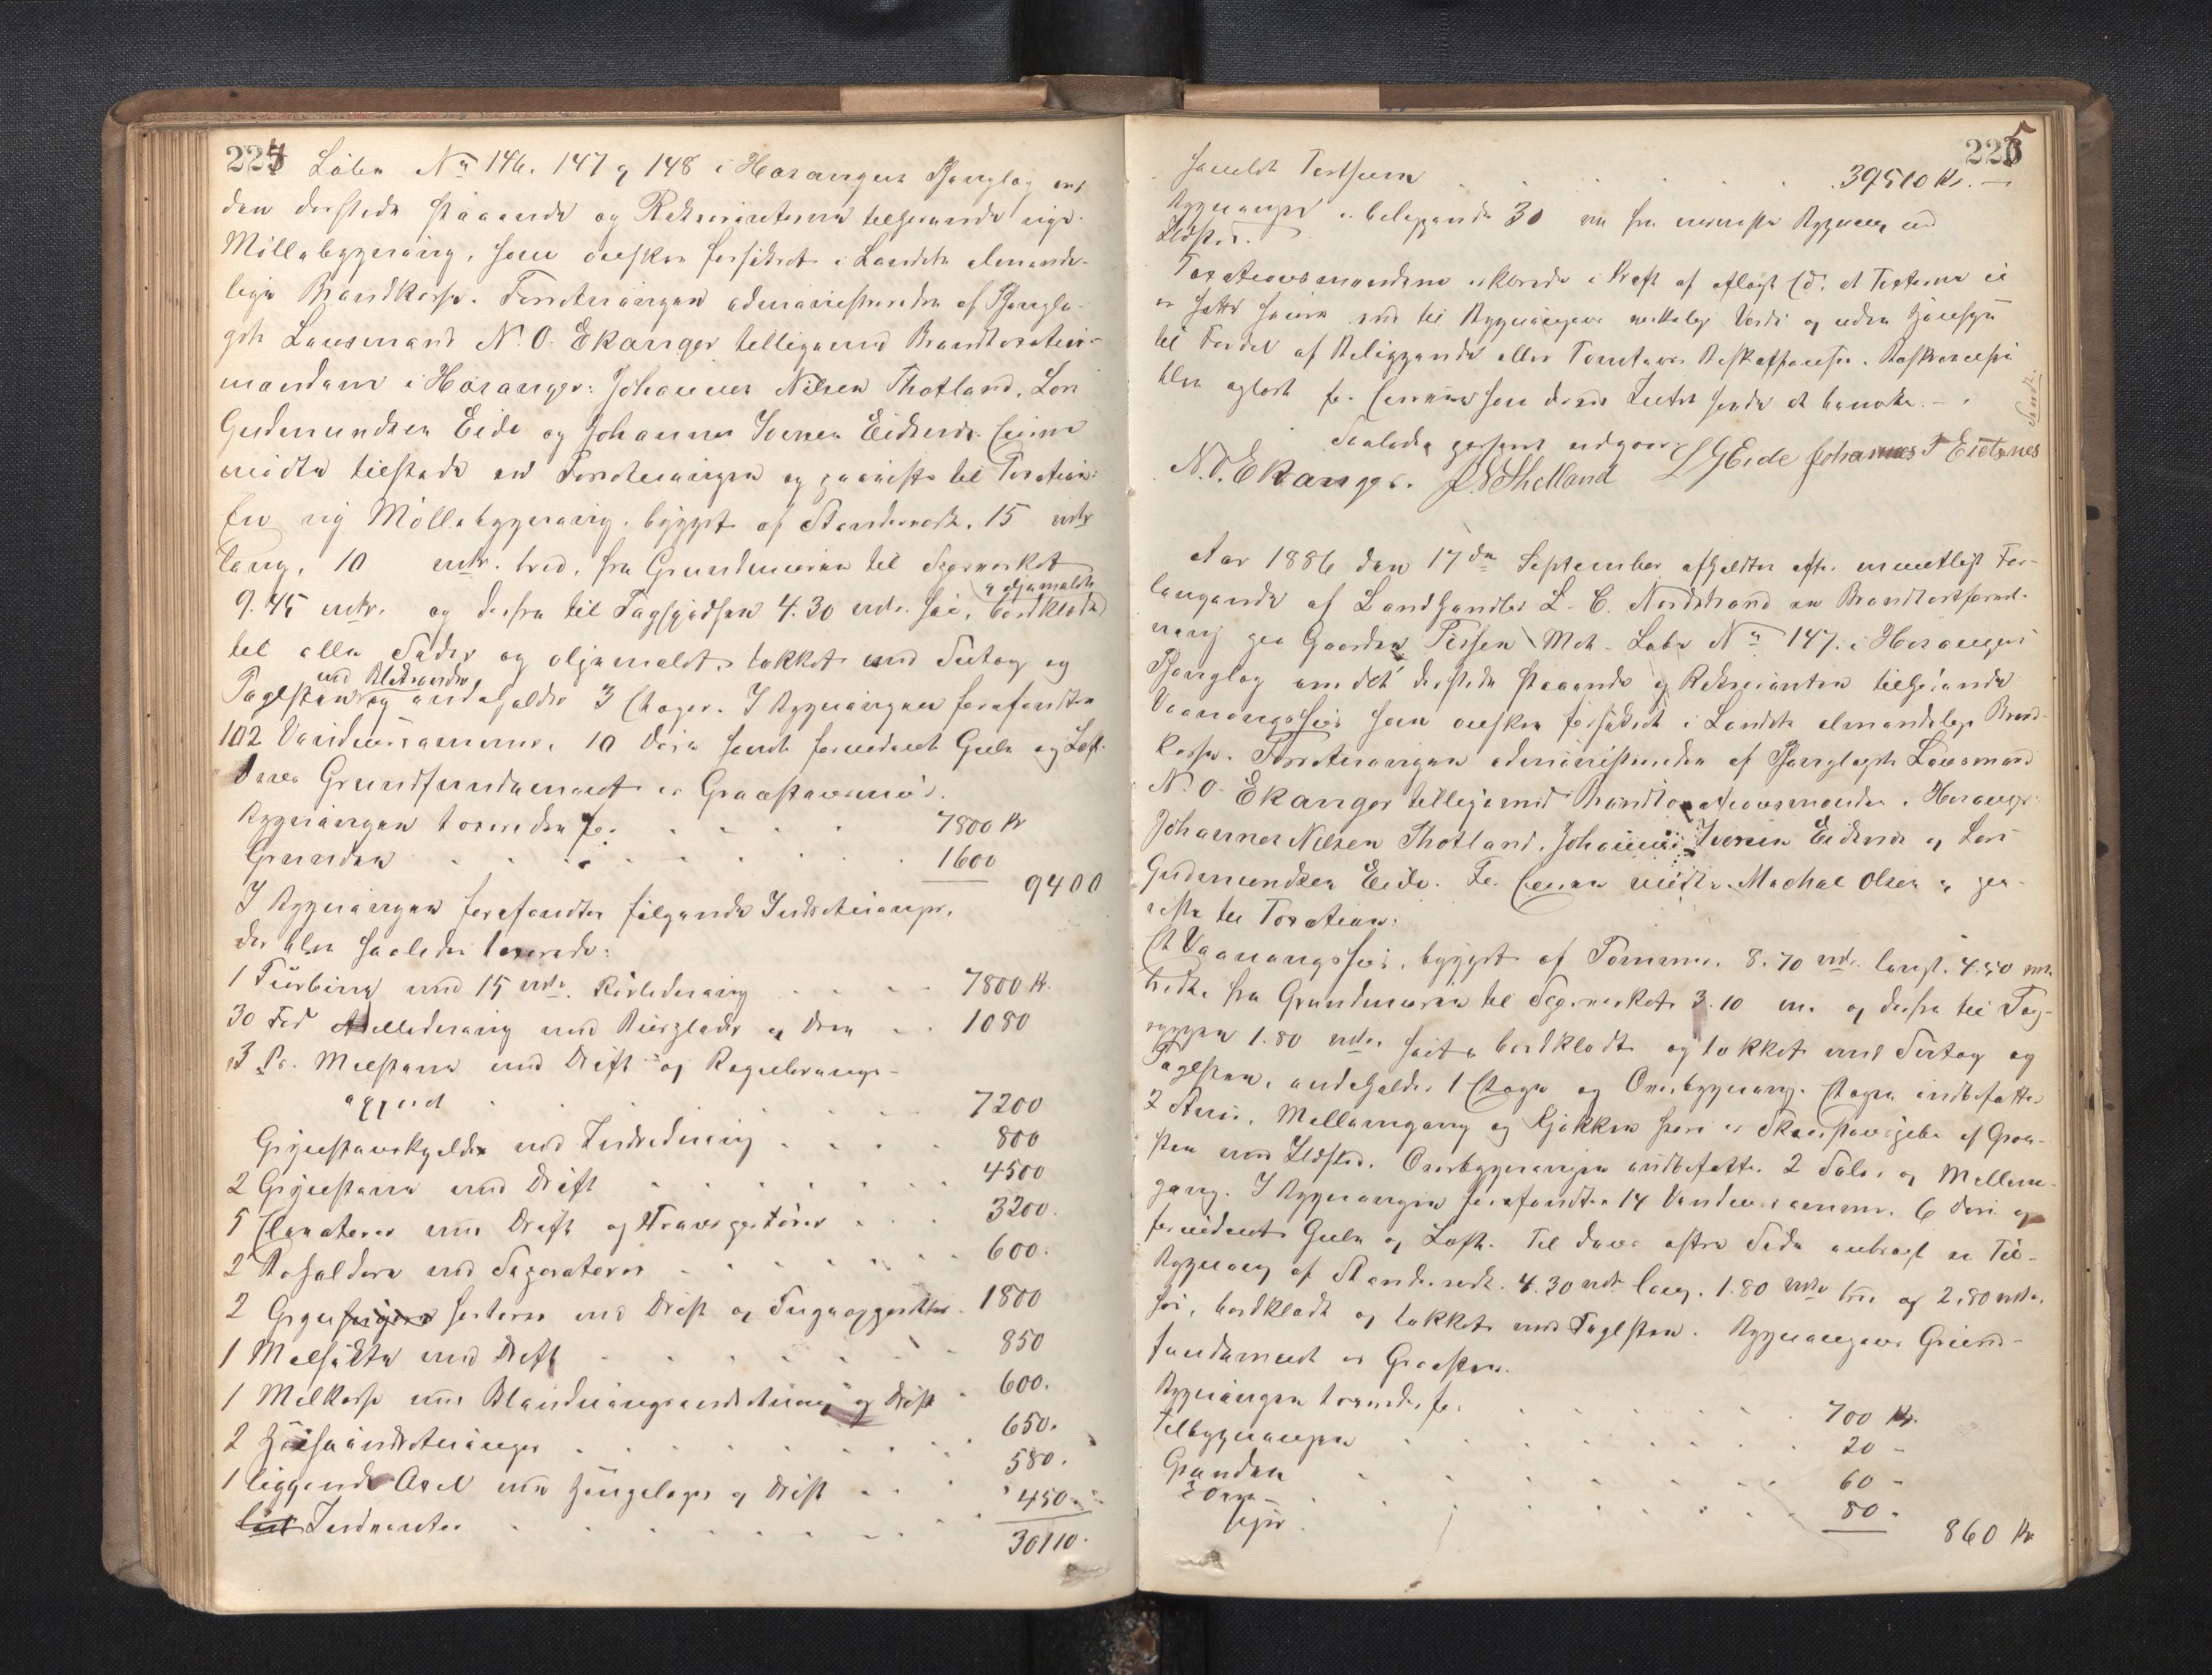 224
Löbe No 146, 147 og 148 i Hosangers Thinglag over
den dersteds staaende og Rekvirenterne tilhørende nye
Möllebygning, som ønskes forsikret i Landets alminde-
lige Brandkasse. Forretningen administreredes af Thingla-
gets Lensmand N. O. Ekanger tilligemed Brandtaxations-
mændene i Hosanger: Johannes Nilsen Thotland, Lars
Gudmundsen Eide og Johannes Iversen Eidsnes.
mødte tilstede ved Forretningen og paaviste til Taxation:
En ny Möllebygning, bygget af Standerverk, 15 mtr
lang, 10 mtr. bred, fra Grundmuren til Sperresket
9.45 mtr. og derfra til Tagspidsen 4.30 mtr. høi, bordklædt
og oljemalt
til alle Sider og oljemalet, tækket med Sutag og
Taglsten og indeholder 3 Etager. I Bygningen forefandtes
102 Vinduesrammer, 10 Døre samt fornødent Gulv og Loft.
Dens Grundfundament er Graastensmur.
Bygningen taxeredes for . . . 7800 Kr
Grunden . . . 1600
9400
I Bygningen forefandtes følgende Indretninger,
der blev saaledes taxerede:
1 Turbine med 15 mtr. Rørledning . . . 7800 Kr.
30 Fod Akselledning med og Drev . . 1080
3 Pr. Melstene med Drift og Regulerings-
apparat . . . 7200
Grynstenskylder med Indredning . . . 800
2 Grynstene med Drift . . . 4500
5 Elevatorer med Drift og Transportører . . . 3200.
2 Beholdere med Separatorer . . . 600.
2 Gryn sorterer med Drift og . 1800
1 Melsikte med Drift . . . 850
1 Melkasse med Blandningsindretning og Drift . 600.
2 Heiseindretninger . . . 650.
1 liggende Axel med Hængelager og Drift . . 580.
Inventar . . . 450.
30110.
225
samlet Taxtsum . . . 39510 Kr. —
Bygningen er beliggende 30 m fra nærmeste Bygning med
Ildsted.
Taxationsmændene erklærede i Kraft af aflagt Ed, at Taxterne ei
er satte høiere end til Bygningens virkelige Værdi og uden Hensyn
til Fordel af Beliggende eller Tomtens Beskaffenhed. Beskrivelse
blev oplæst for som dens Intet havde at bemærke. —
Saaledes passeret udgaar.
N. O. Ekanger. J N Thotland L G Eide Johannes I Eidsnes
Sendt.
Aar 1886 den 17de September afholdtes efter mundtligt For-
langende af Landhandler L. C. Nordstrand en Brandtaxtforret-
ning paa Gaarden Tessem Mat. Løbe No 147. i Hosangers
Thinglag over det dersteds staaende og Rekvirenten tilhørende
Vaaningshus som ønskes forsikret i Landets almindelige Brand-
kasse. Forretningen administreredes af Thinglagets Lensmand
N. O. Ekanger tilligemed Brandtaxationsmændene i Hosanger:
Johannes Nilsen Thotland, Johannes Iversen Eidsnes og Lars
Gudmundsen Eide. For mødte Mathae Olsen og paa-
viste til Taxation:
Et Vaaningshus, bygget af Tømmer, 8.70 mtr. langt, 4.50 mtr.
bredt, fra Grundmuren til Sperresket 3.10 m. og derfra til Tag-
ryggen 1.80 mtr. høit, bordklædt og tækket med Sutag og
Taglsten, indeholder 1 Etage og Overbygning. Etagen indbefatter
2 Stuer, Mellemgang og Kjøkken hvori er Skorstenspibe af Graa-
sten med Ildsted. Overbygningen indbefatter 2 Sale og Mellem-
gang. I Bygningen forefandtes 14 Vinduesrammer, 6 Døre og
fornødent Gulv og Loft. Til dens østre Side anbragt en Til-
bygning af Standerverk, 4.30 mtr lang, 1.80 mtr bred og 2.80 mtr.
høi, bordklædt og tækket med Taglsten. Bygningens Grund-
fundament er Graasten.
Bygningen taxeredes for . . . 700 Kr.
Tilbygningen . . . 20 -
Grunden . . . 60 -
2 Ovne . . . 80 -
860 Kr